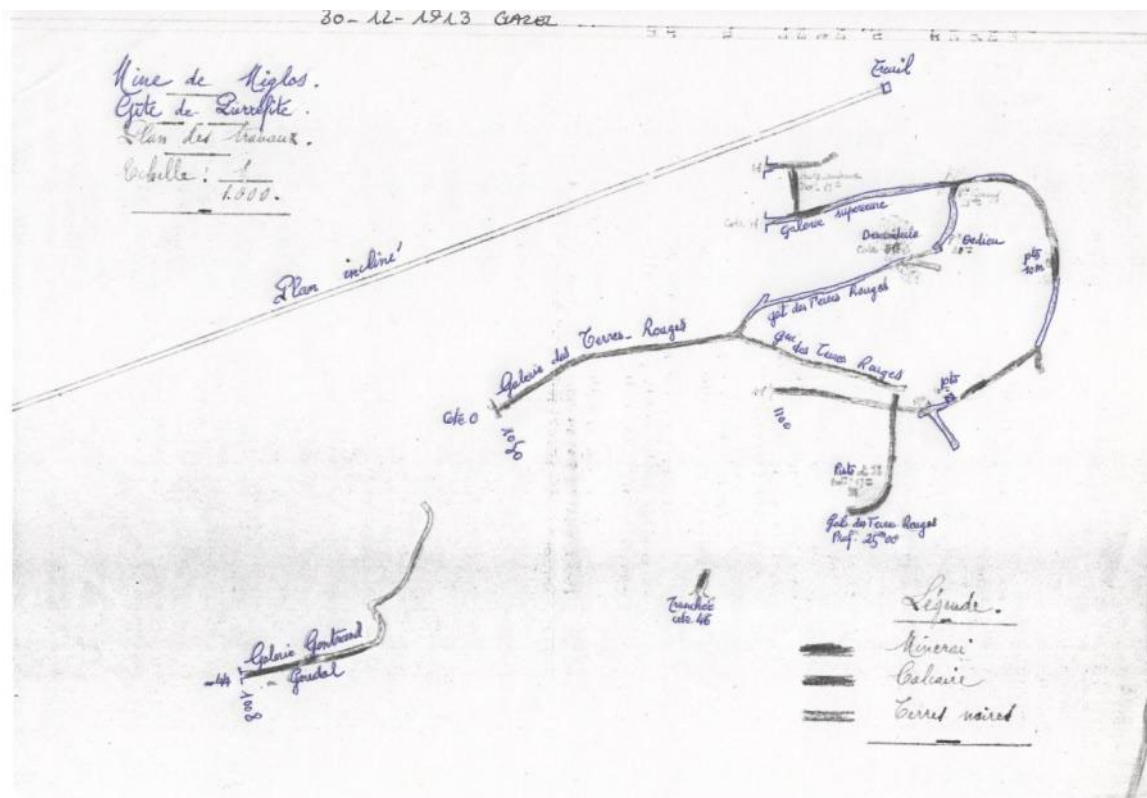 30-12-1913 GAZEL
Mine de Miglos.
Gîte de Larréfite.
Plan des travaux.
Echelle : 1
1.000.
Treuil
Plan incliné
Galerie superieure
Descenderie
Cote
Dedieu
pts
10m
gal des Terres Rouges
Galerie des Terres-Rouges
gie des Terres Rouges
Cote 0
1050
1100
pts
Puits
Gal. des Terres Rouges
Prof. 25m00
Tranchée
cote 46
Galerie Gontrand
- Goudal
-44
1008
Légende.
Minerai
Calcaire
Terres noires